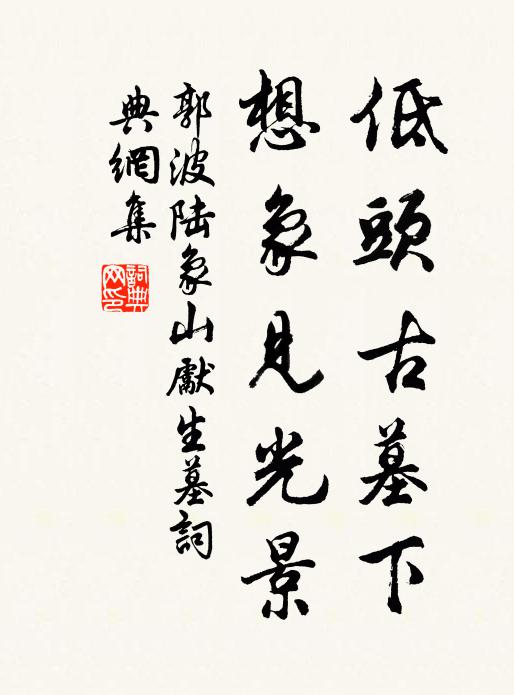 低頭古墓下
想象見光景
郭波陸象山獻生墓詞
典網集
詞典網印